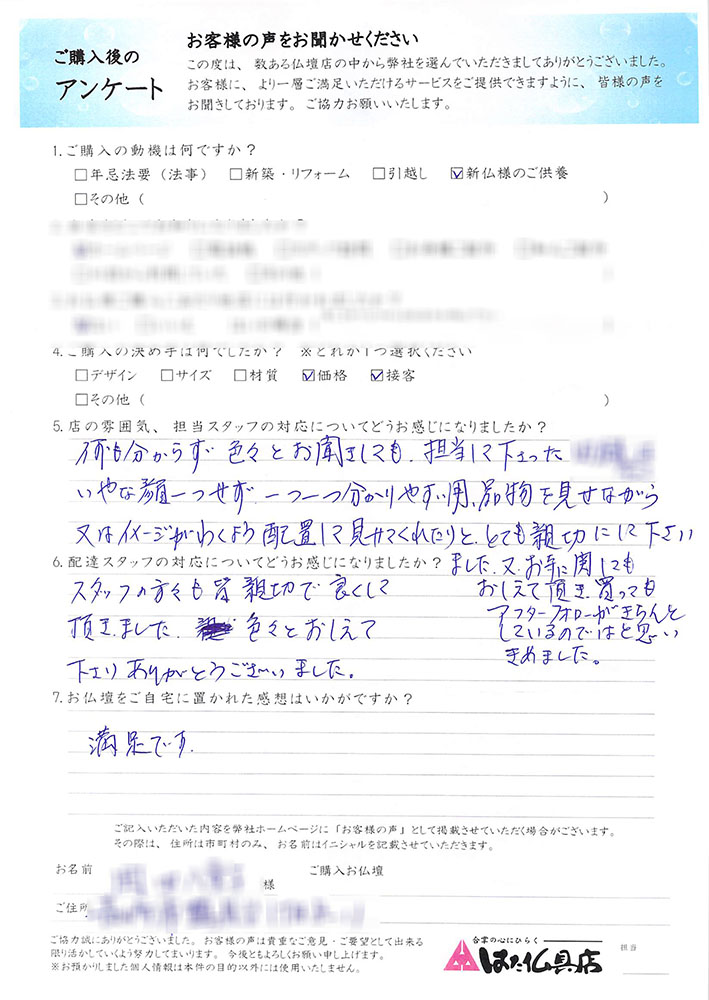 ご購入後の
アンケート
お客様の声をお聞かせください
この度は、数ある仏壇店の中から弊社を選んでいただきましてありがとうございました。
お客様に、より一層ご満足いただけるサービスをご提供できますように、皆様の声を
お聞きしております。ご協力お願いいたします。
1.ご購入の動機は何ですか？
□年忌法要（法事） □新築・リフォーム □引越し ☑新仏様のご供養
□その他（ ）
4.ご購入の決め手は何でしたか？ ※どれか1つ選択ください
□デザイン □サイズ □材質 ☑価格 ☑接客
□その他（ ）
5.店の雰囲気、担当スタッフの対応についてどうお感じになりましたか？
何も分からず 色々とお聞きしても、担当して下さった
いやな顔一つせず 一つ一つ分かりやすい用、品物を見せながら
又はイメージがわくよう配置して見せてくれたりと、とても親切にして下さい
ました。又、お寺に関しても
おしえて頂き、買っても
アフターフォローがきちんと
しているのではと思い
きめました。
6.配達スタッフの対応についてどうお感じになりましたか？
スタッフの方々も皆 親切で良くして
頂きました。 色々とおしえて
下さりありがとうございました。
7.お仏壇をご自宅に置かれた感想はいかがですか？
満足です.
ご記入いただいた内容を弊社ホームページに「お客様の声」として掲載させていただく場合がございます。
その際は、住所は市町村のみ、お名前はイニシャルを記載させていただきます。
お名前 様 ご購入お仏壇
ご住所
ご協力誠にありがとうございました。お客様の声は貴重なご意見・ご要望として出来る
限り活かしていくよう努力してまいります。今後ともよろしくお願い申し上げます。
※お預かりしました個人情報は本件の目的以外には使用いたしません。
合掌の心にひらく
はた仏具店
担当